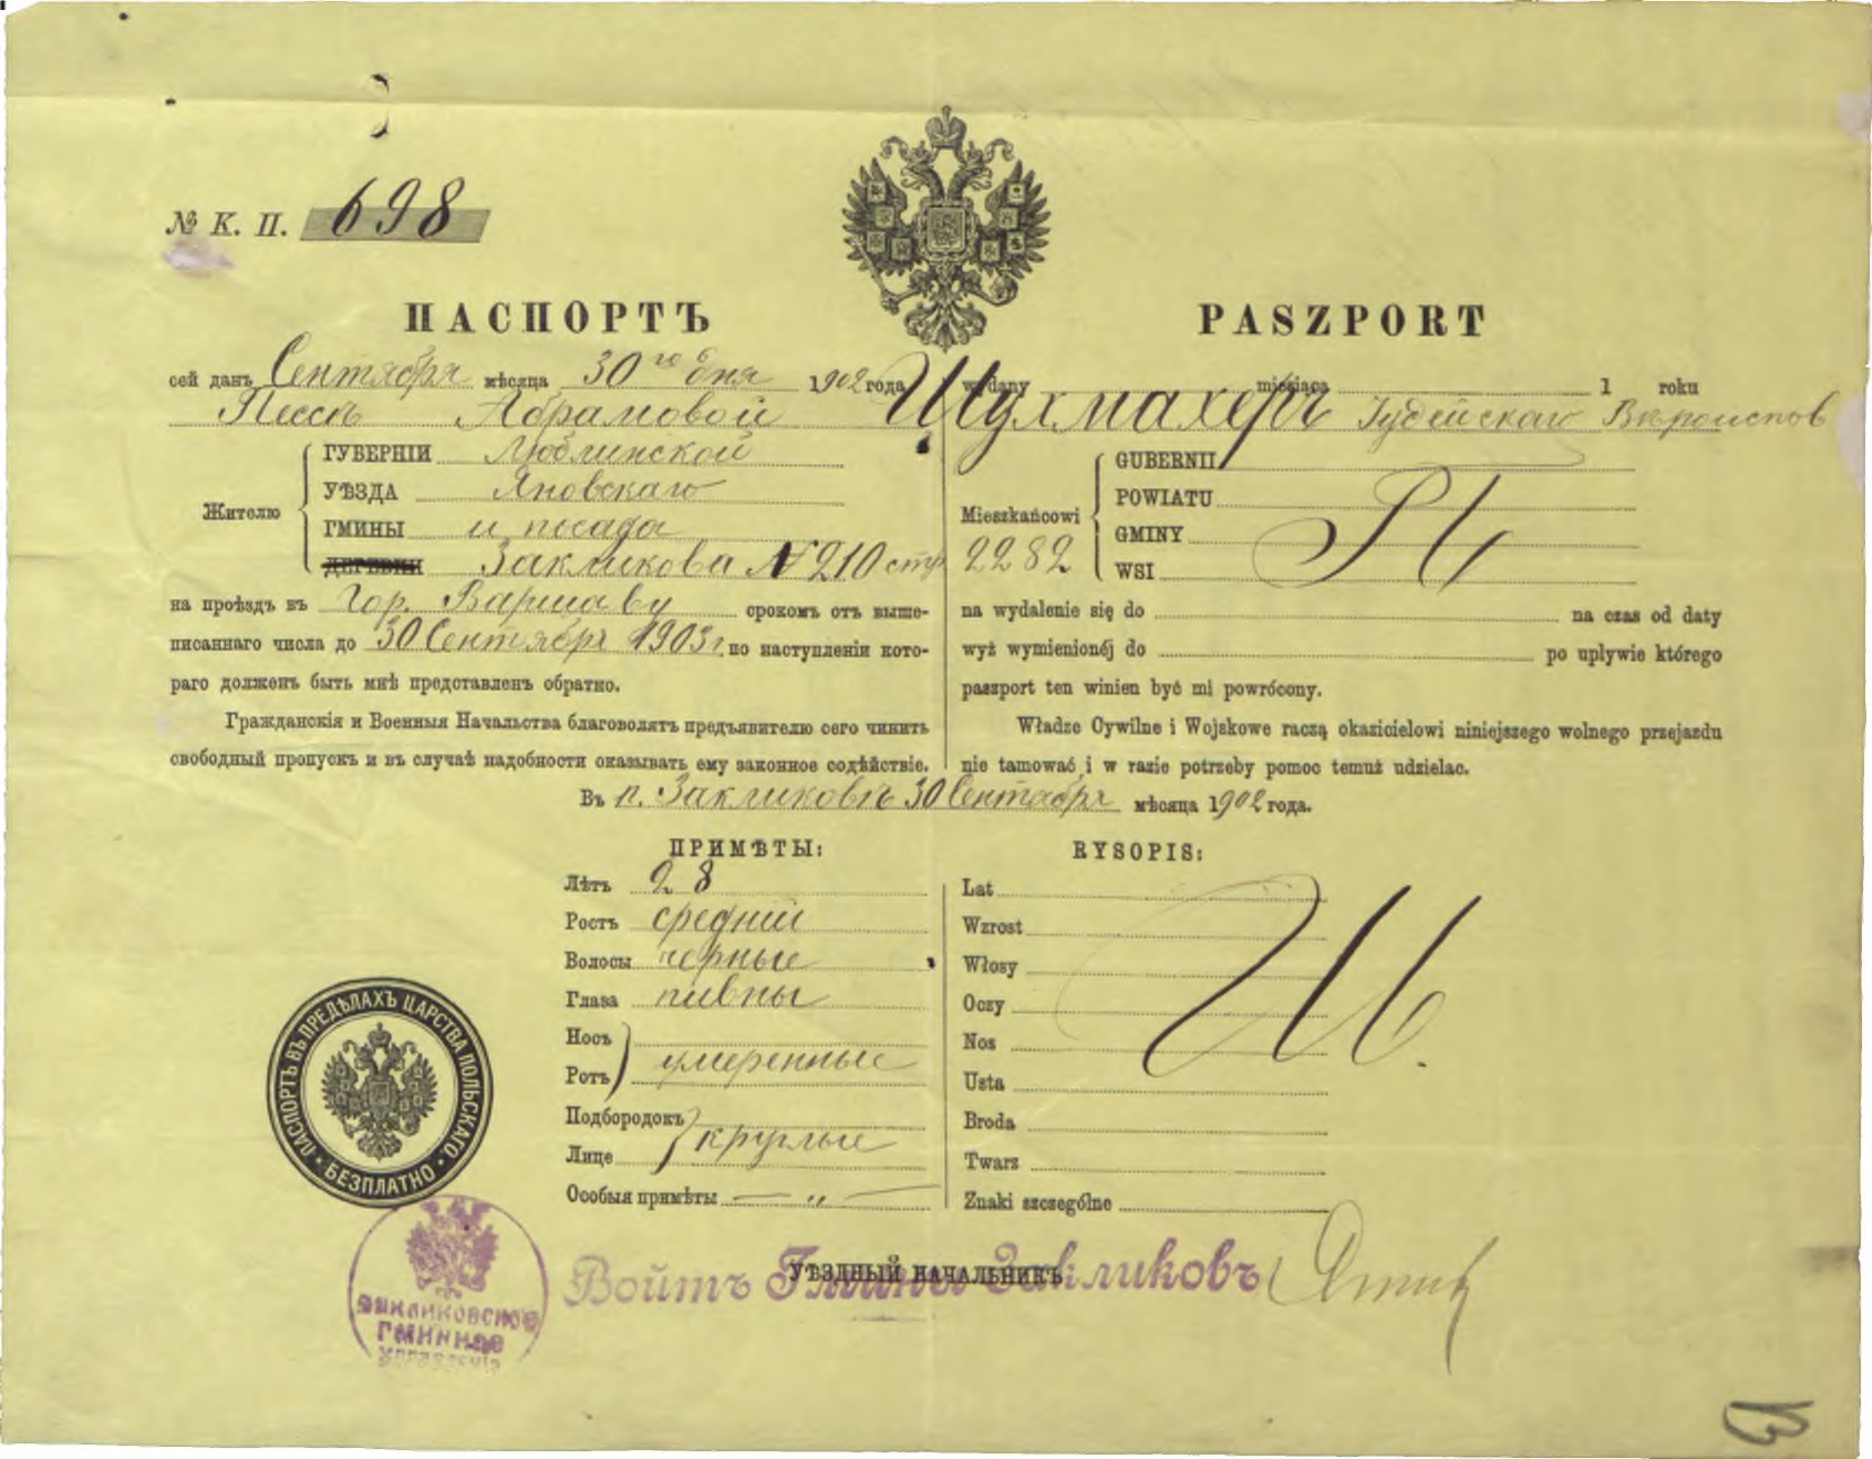 № К. П. 698
ПАСПОРТЪ
PASZPORT
сей данъ Сентября мѣсяца 30го дня 1902 года
wydany miesiąca 1 roku
Пессѣ Абрамовой Шухмахеръ Іудейскаго Вѣроиспов
Жителю
ГУБЕРНІИ Люблинской
УѢЗДА Яновскаго
ГМИНЫ и посада
ДЕРЕВНИ Закликова № 210 стр 2282
Mieszkańcowi
GUBERNII
POWIATU
GMINY
WSI
на проѣздъ въ гор. Варшаву срокомъ отъ выше-
писаннаго числа до 30 Сентября 1903 г. по наступленіи кото-
раго долженъ быть мнѣ представленъ обратно.
Гражданскія и Военныя Начальства благоволятъ предъявителю сего чинить
свободный пропускъ и въ случаѣ надобности оказывать ему законное содѣйствіе.
na wydalenie się do na czas od daty
wyż wymienionéj do po upływie którego
paszport ten winien być mi powrócony.
Władze Cywilne i Wojskowe raczą okazicielowi niniejszego wolnego przejazdu
nie tamować i w razie potrzeby pomoc temuż udzielac.
Въ п. Закликовѣ 30 Сентября мѣсяца 1902 года.
ПРИМѢТЫ:
Лѣтъ 28
Ростъ средній
Волосы черные
Глаза пивны
Носъ
Ротъ умеренные
Подбородокъ
Лице круглые
Особыя примѣты — „ —
RYSOPIS:
Lat
Wzrost
Włosy
Oczy
Nos
Usta
Broda
Twarz
Znaki szczególne
ПАСПОРТЪ ВЪ ПРЕДѢЛАХЪ ЦАРСТВА ПОЛЬСКАГО.
БЕЗПЛАТНО
УѢЗДНЫЙ НАЧАЛЬНИКЪ
Войтъ Гмины Закликовъ
Закликовское
Гминное
Управленіе